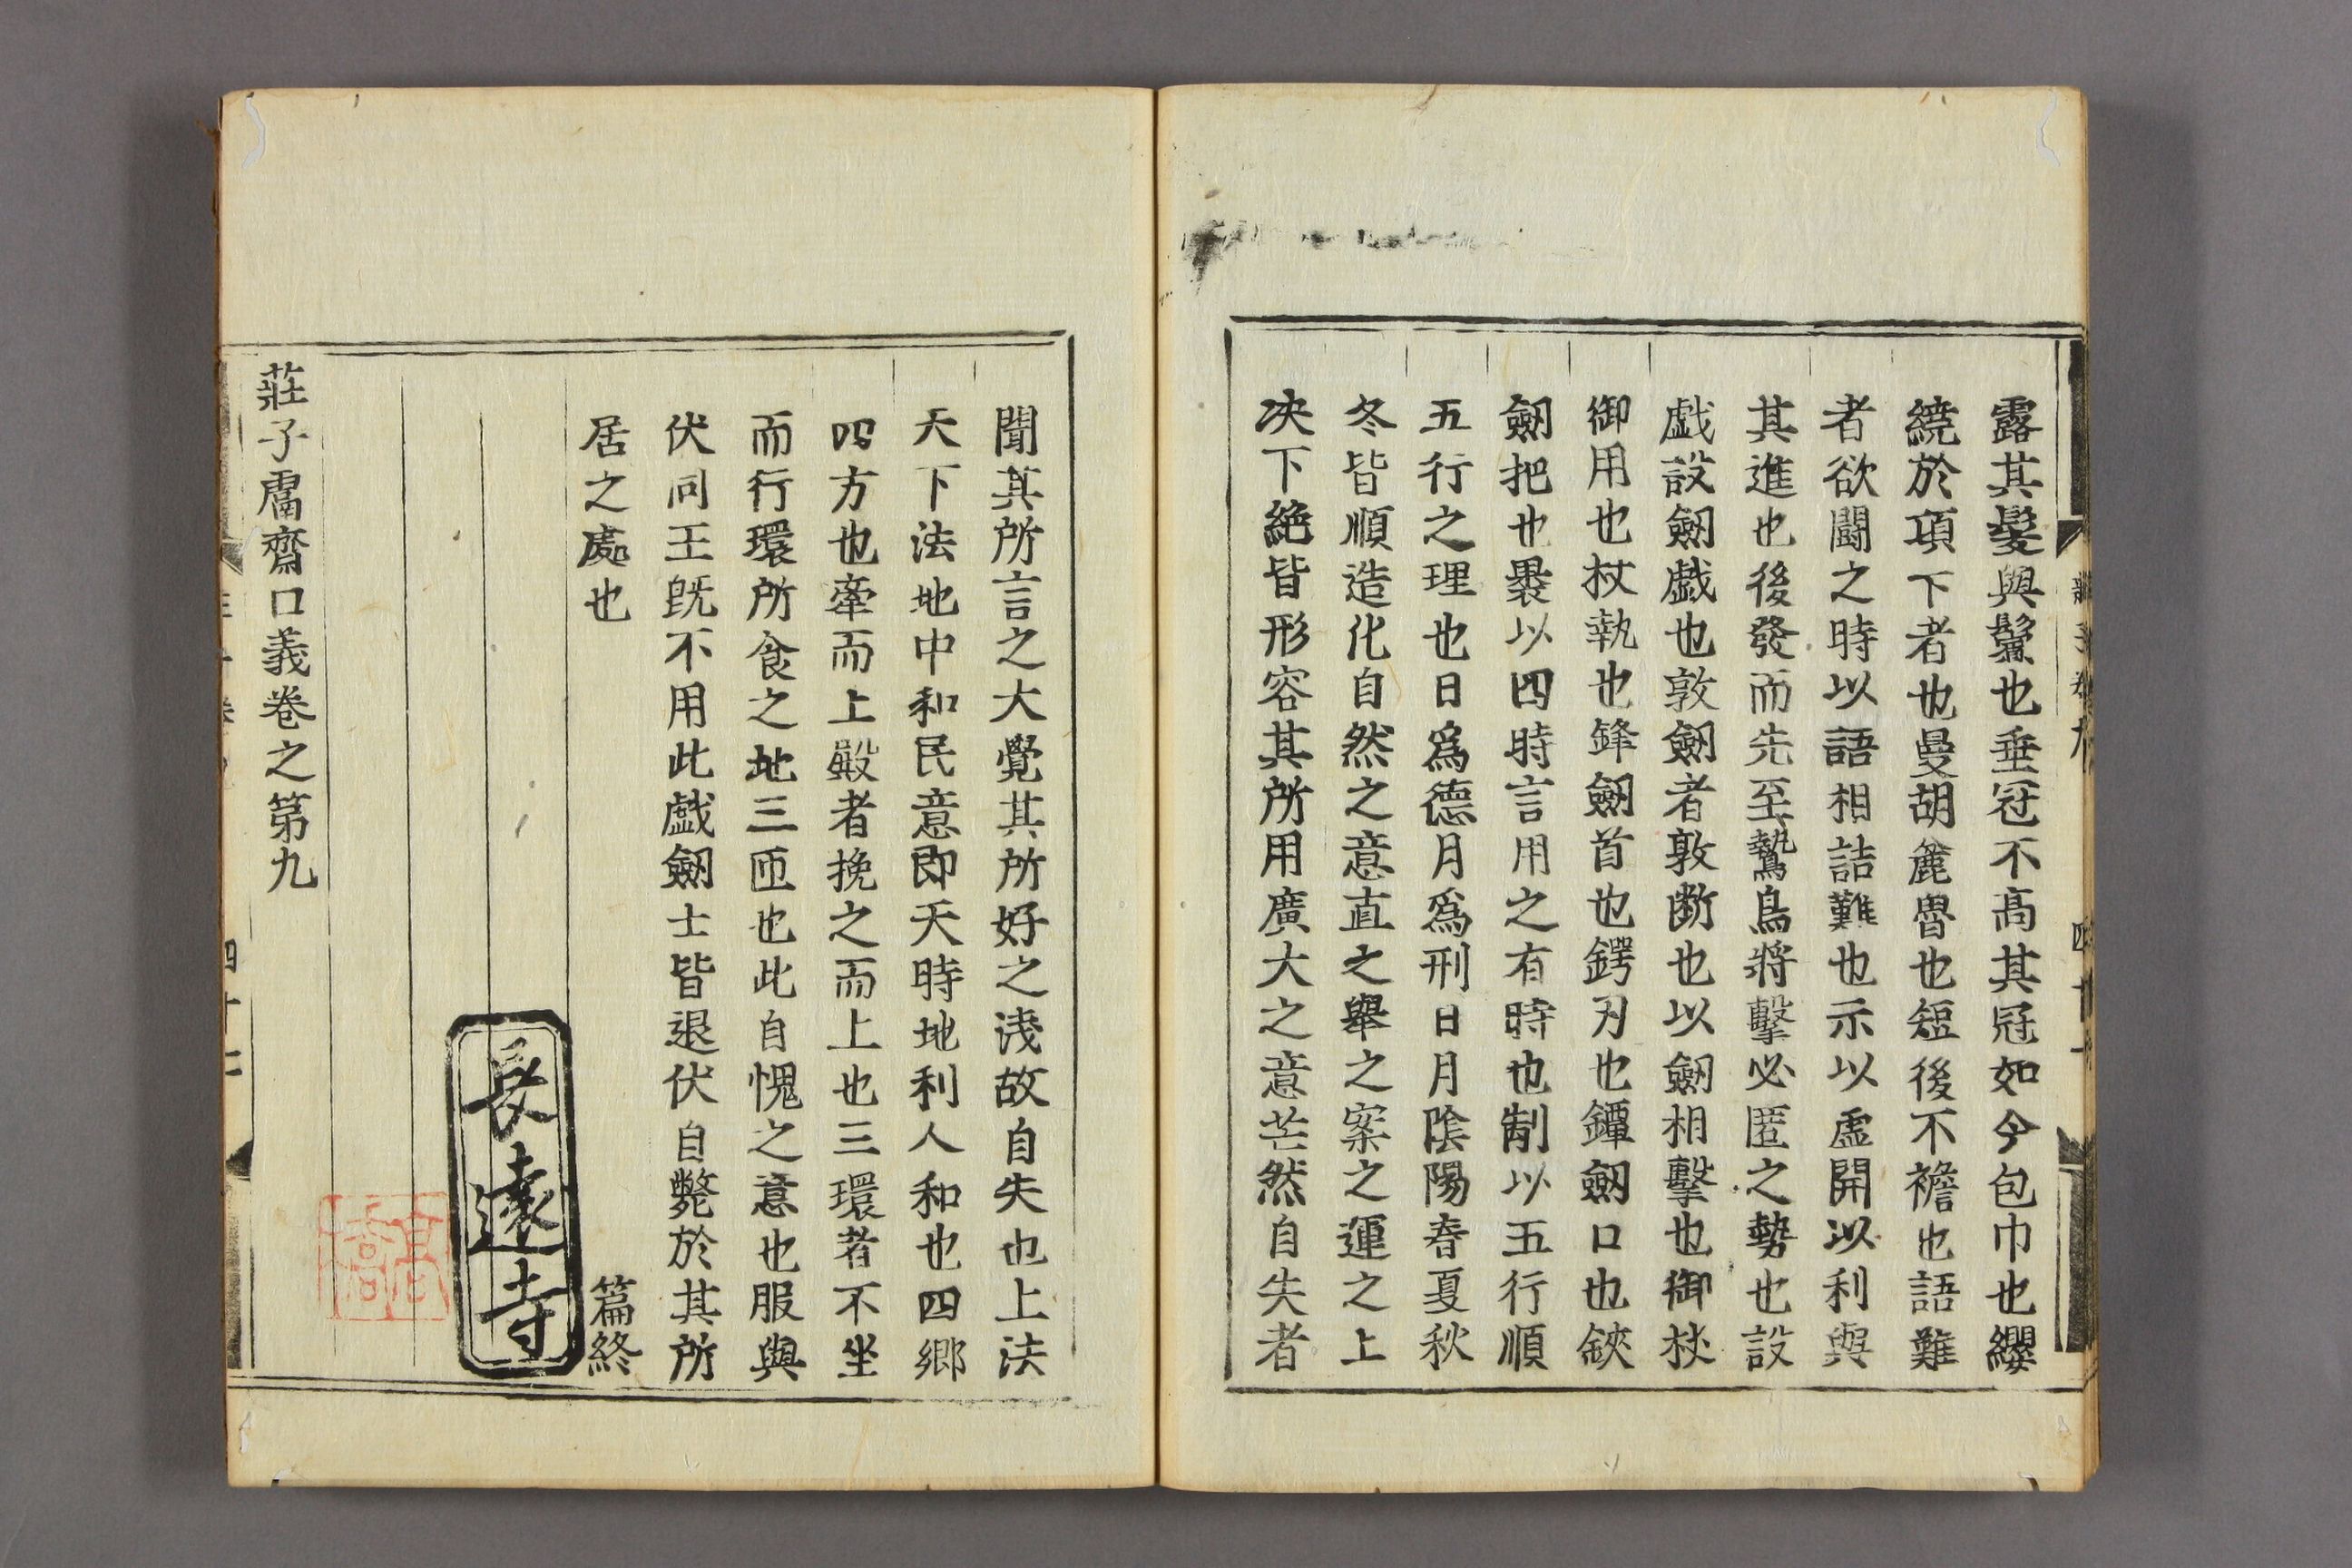 露其髮與鬢也垂冠不高其冠如今包巾也纓
繞於項下者也曼胡麄魯也短後不襜也語難
者欲鬪之時以語相詰難也示以虛開以利與
其進也後發而先至鷙鳥將擊必匿之勢也設
戯設劒戯也敦劒者敦断也以劒相擊也御杖
御用也杖執也鋒劒首也鍔刃也鐔劒口也鋏
劒把也褁以四時言用之有時也制以五行順
五行之理也日爲德月爲刑日月陰陽春夏秋
冬皆順造化自然之意直之舉之案之運之上
决下絶皆形容其所用廣大之意芒然自失者
聞其所言之大覺其所好之淺故自失也上法
天下法地中和民意即天時地利人和也四鄉
四方也牽而上殿者挽之而上也三環者不坐
而行環所食之地三匝也此自愧之意也服與
伏同王旣不用此戯劒士皆退伏自斃於其所
居之處也
篇終
長遠寺
莊子鬳齋口義卷之第九